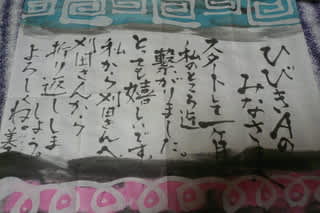 ひびきAの
みなさま
スタートして一ヶ月
私のところ迄
繋がりました。
とっても嬉しいです。
私から刈田さんへ
刈田さんから
折り返ししましょう。
よろしくね。美